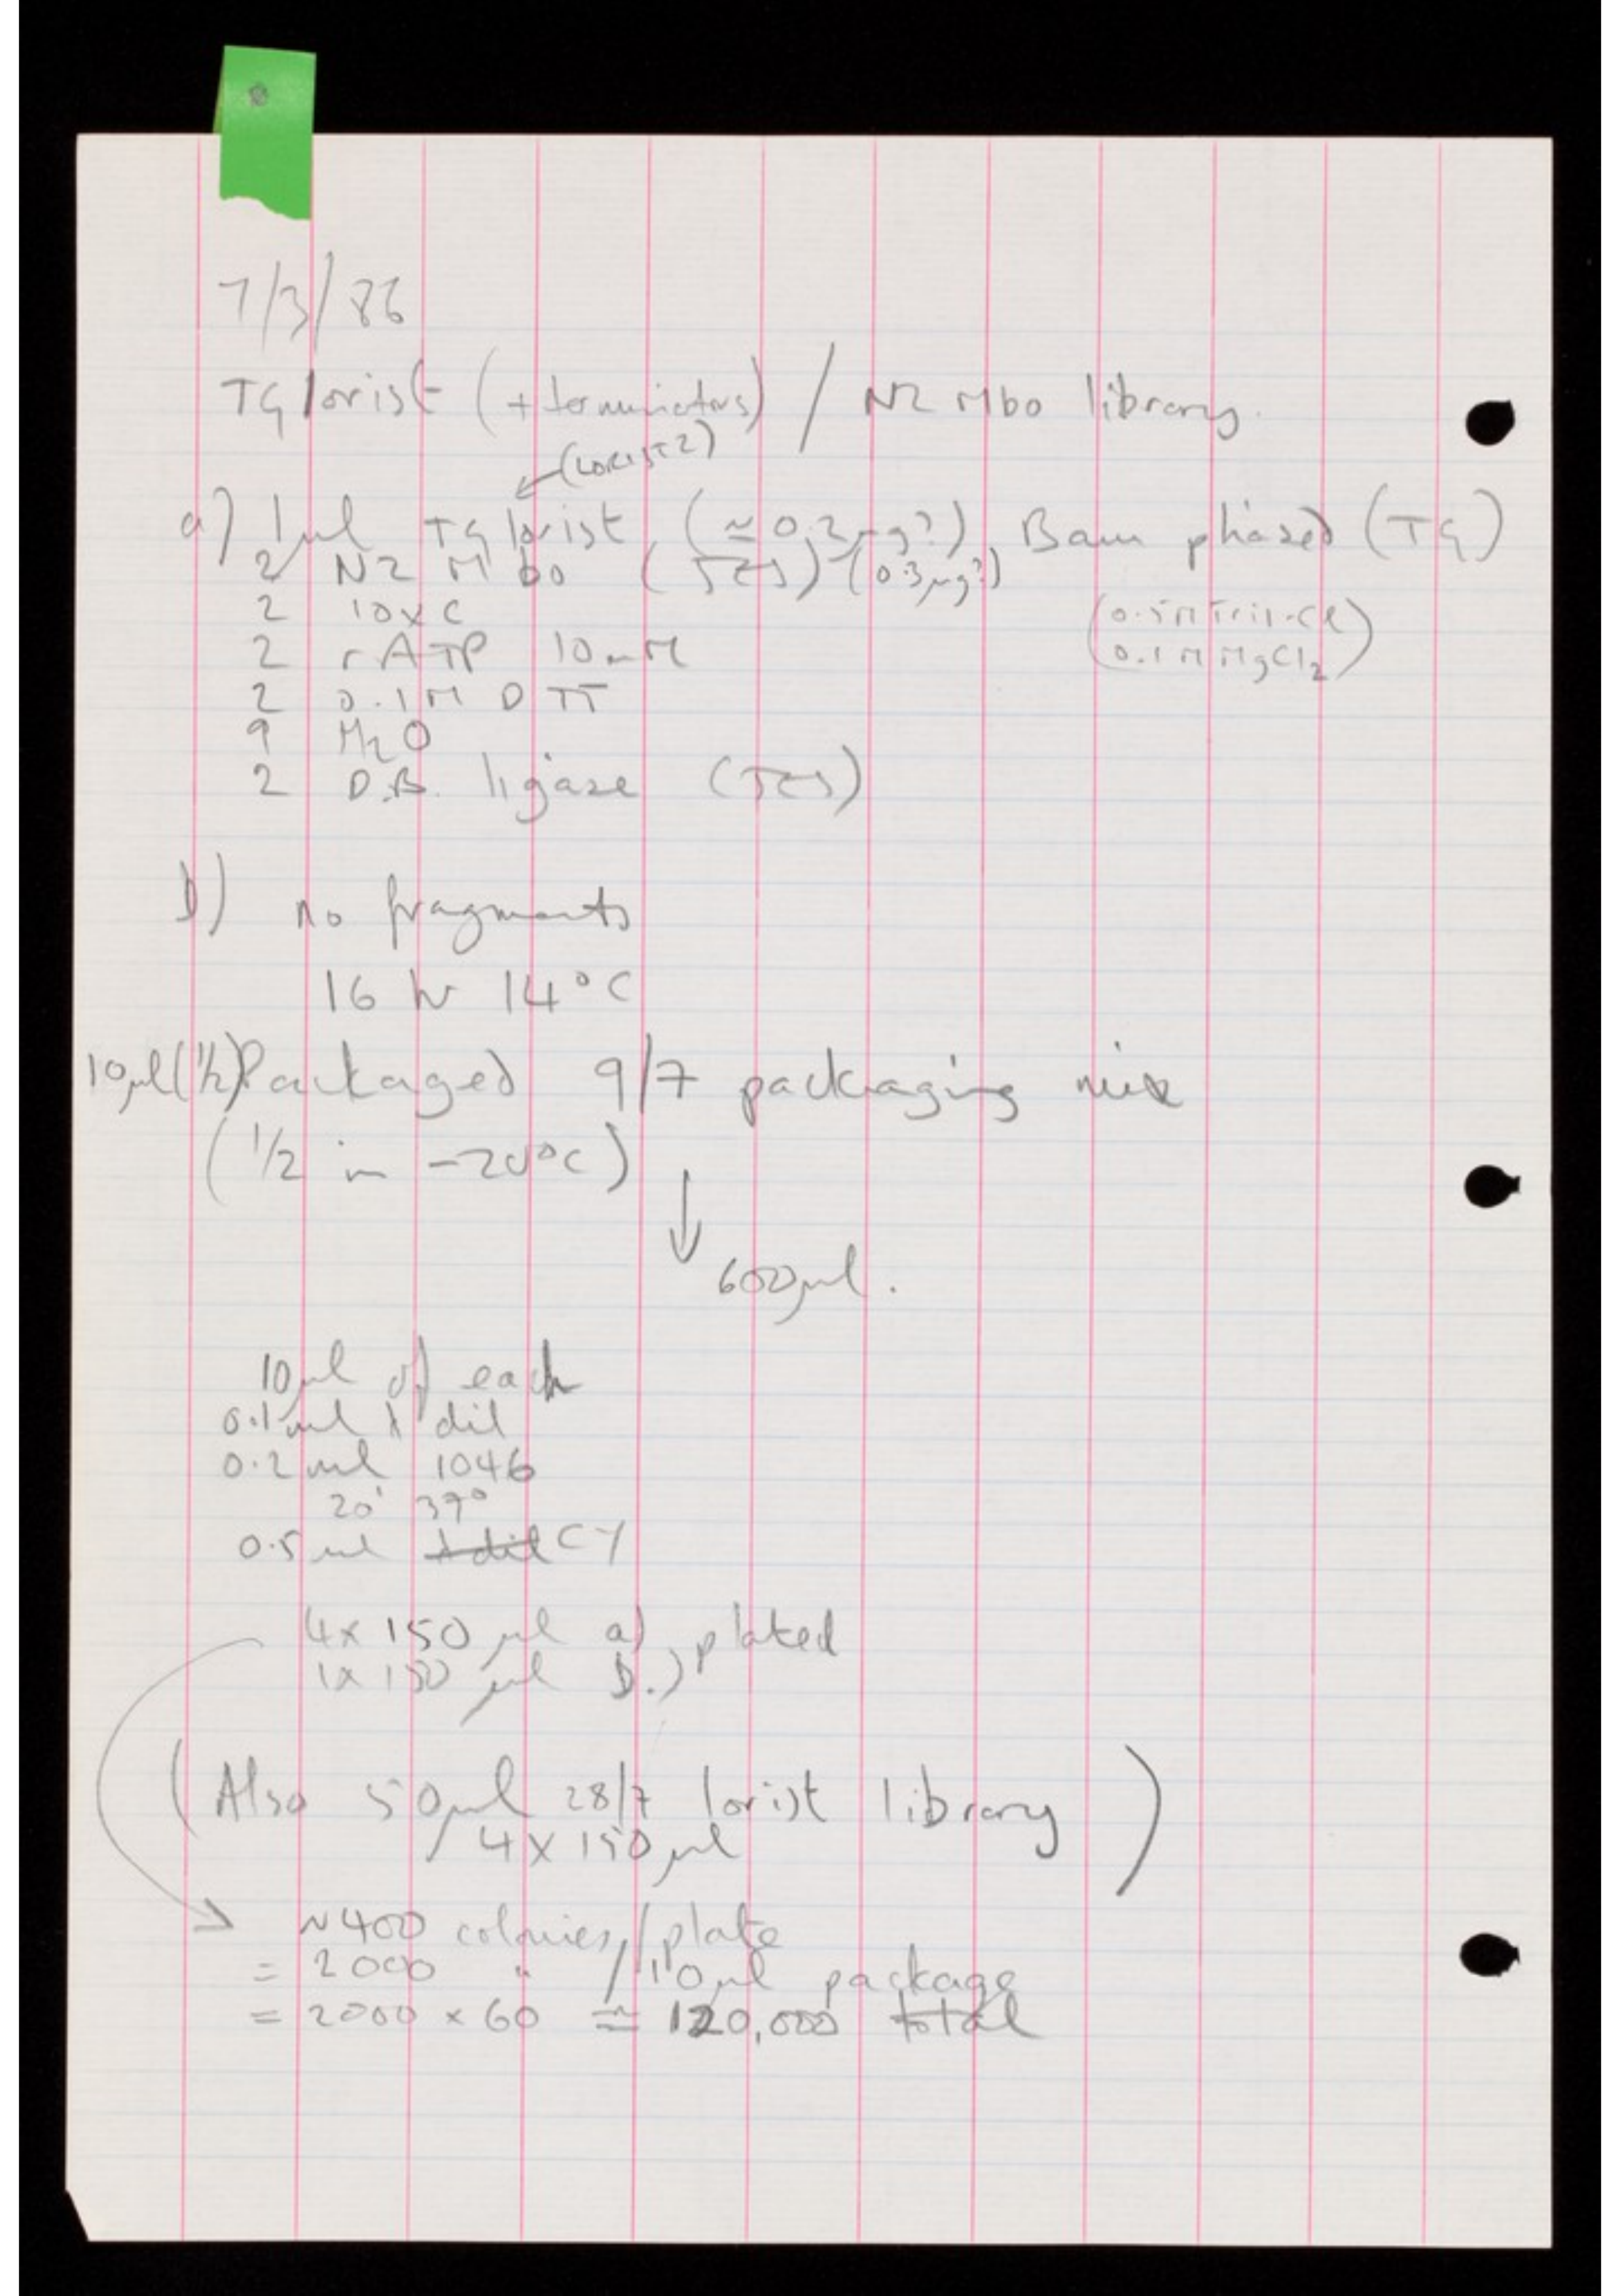 7/3/86
TG lorist (+ terminators) / N2 Mbo library.
(LORIST2)
a) 1 μl TG lorist (≃ 0.2 μg?) Bam phased (TG)
2 N2 Mbo (JES) (0.3 μg?)
2 10xC (0.5M Tris.Cl
2 rATP 10mM 0.1M MgCl2)
2 0.1M DTT
9 H2O
2 D.B. ligase (JES)
b) no fragments
16 hr 14°C
10μl (1/2) Packaged 9/7 packaging mix
(1/2 in -20°C)
600μl.
10μl of each
0.1 ml λ dil
0.2 ml 1046
20' 37°
0.5 ml λ dil CY
4x 150 μl a) plated
1x 150 μl b.)
(Also 50μl 28/7 lorist library)
/ 4 X 150 μl
~400 colonies / plate
= 2000 " / 10μl package
= 2000 x 60 ≃ 120,000 total